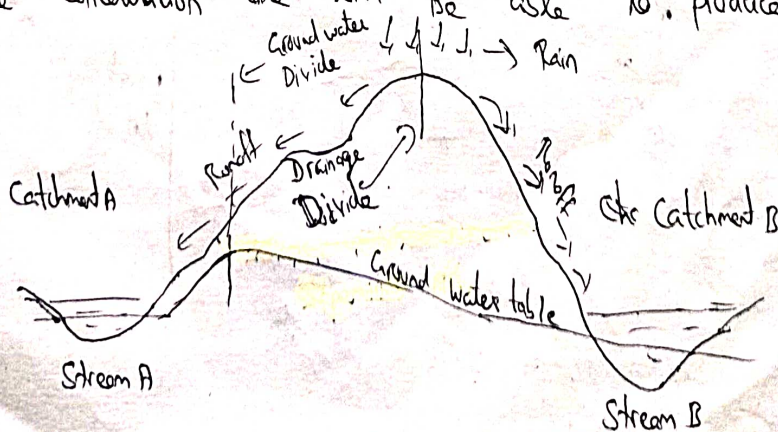 be able to. produce
Ground water
Divide
Rain
Runoff
Drainage
Divide
Runoff
Catchment A
Catchment B
Ground water table
Stream A
Stream B